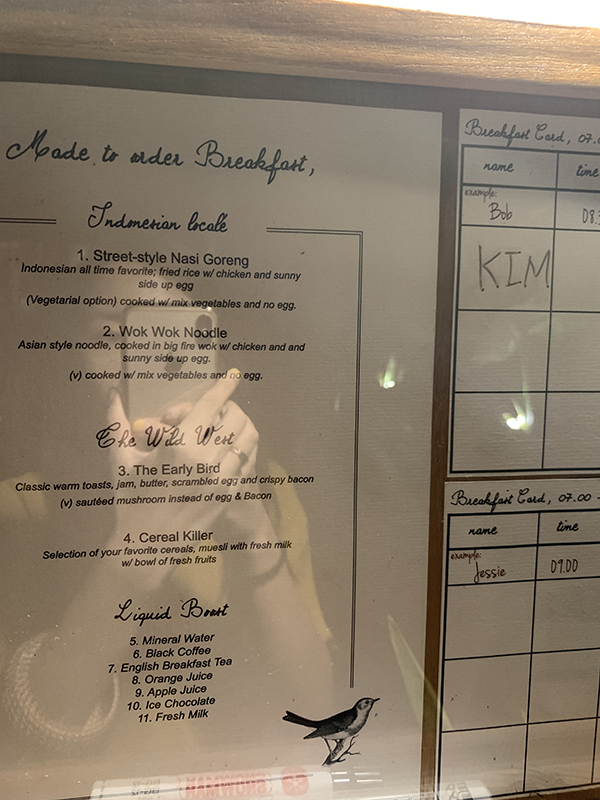 Made to order Breakfast,
Indonesian locale
1. Street-style Nasi Goreng
Indonesian all time favorite; fried rice w/ chicken and sunny
side up egg
(Vegetarial option) cooked w/ mix vegetables and no egg.
2. Wok Wok Noodle
Asian style noodle, cooked in big fire wok w/ chicken and and
sunny side up egg.
(v) cooked w/ mix vegetables and no egg.
The Wild West
3. The Early Bird
Classic warm toasts, jam, butter, scrambled egg and crispy bacon
(v) sautéed mushroom instead of egg & Bacon
4. Cereal Killer
Selection of your favorite cereals, muesli with fresh milk
w/ bowl of fresh fruits
Liquid Boost
5. Mineral Water
6. Black Coffee
7. English Breakfast Tea
8. Orange Juice
9. Apple Juice
10. Ice Chocolate
11. Fresh Milk
Breakfast Card, 07.
name time
example:
Bob 08.
KIM
Breakfast Card, 07.00 -
name time
example:
Jessie 09.00